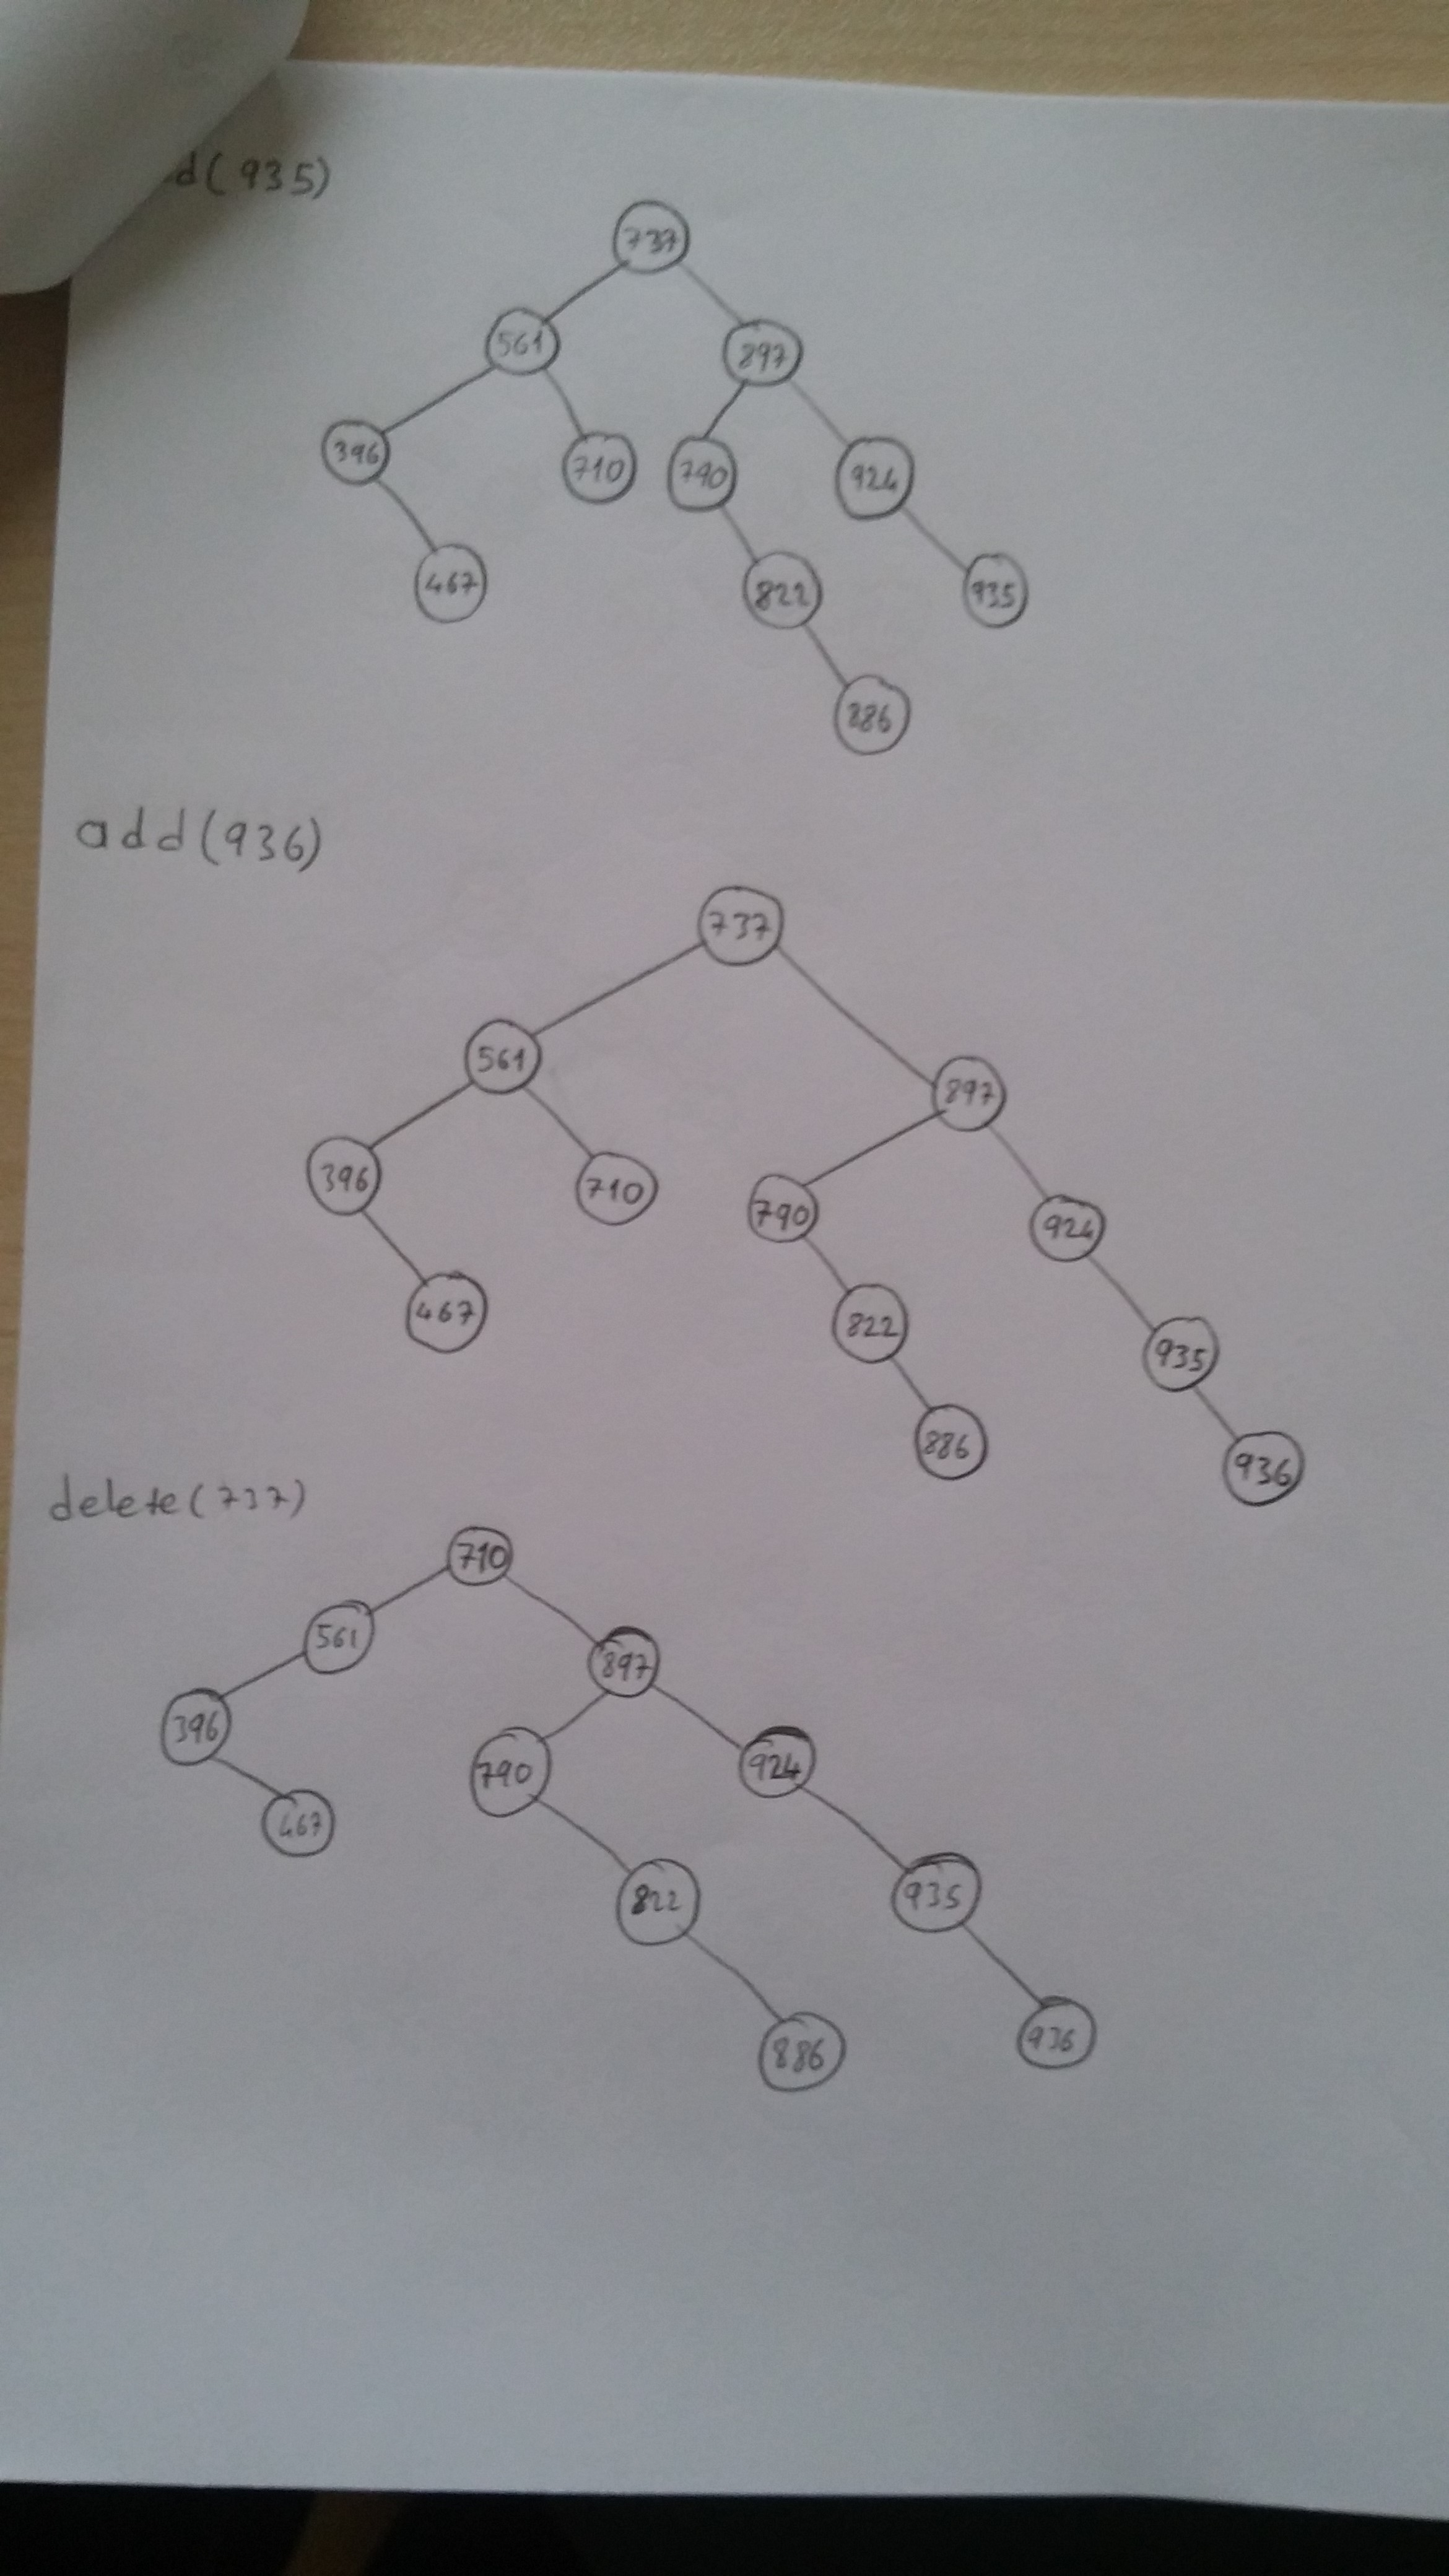 d(935)
737
561 897
396 710 790 924
467 822 935
886
add(936)
737
561 897
396 710 790 924
467 822 935
886 936
delete(737)
710
561 897
396 790 924
467 822 935
886 936